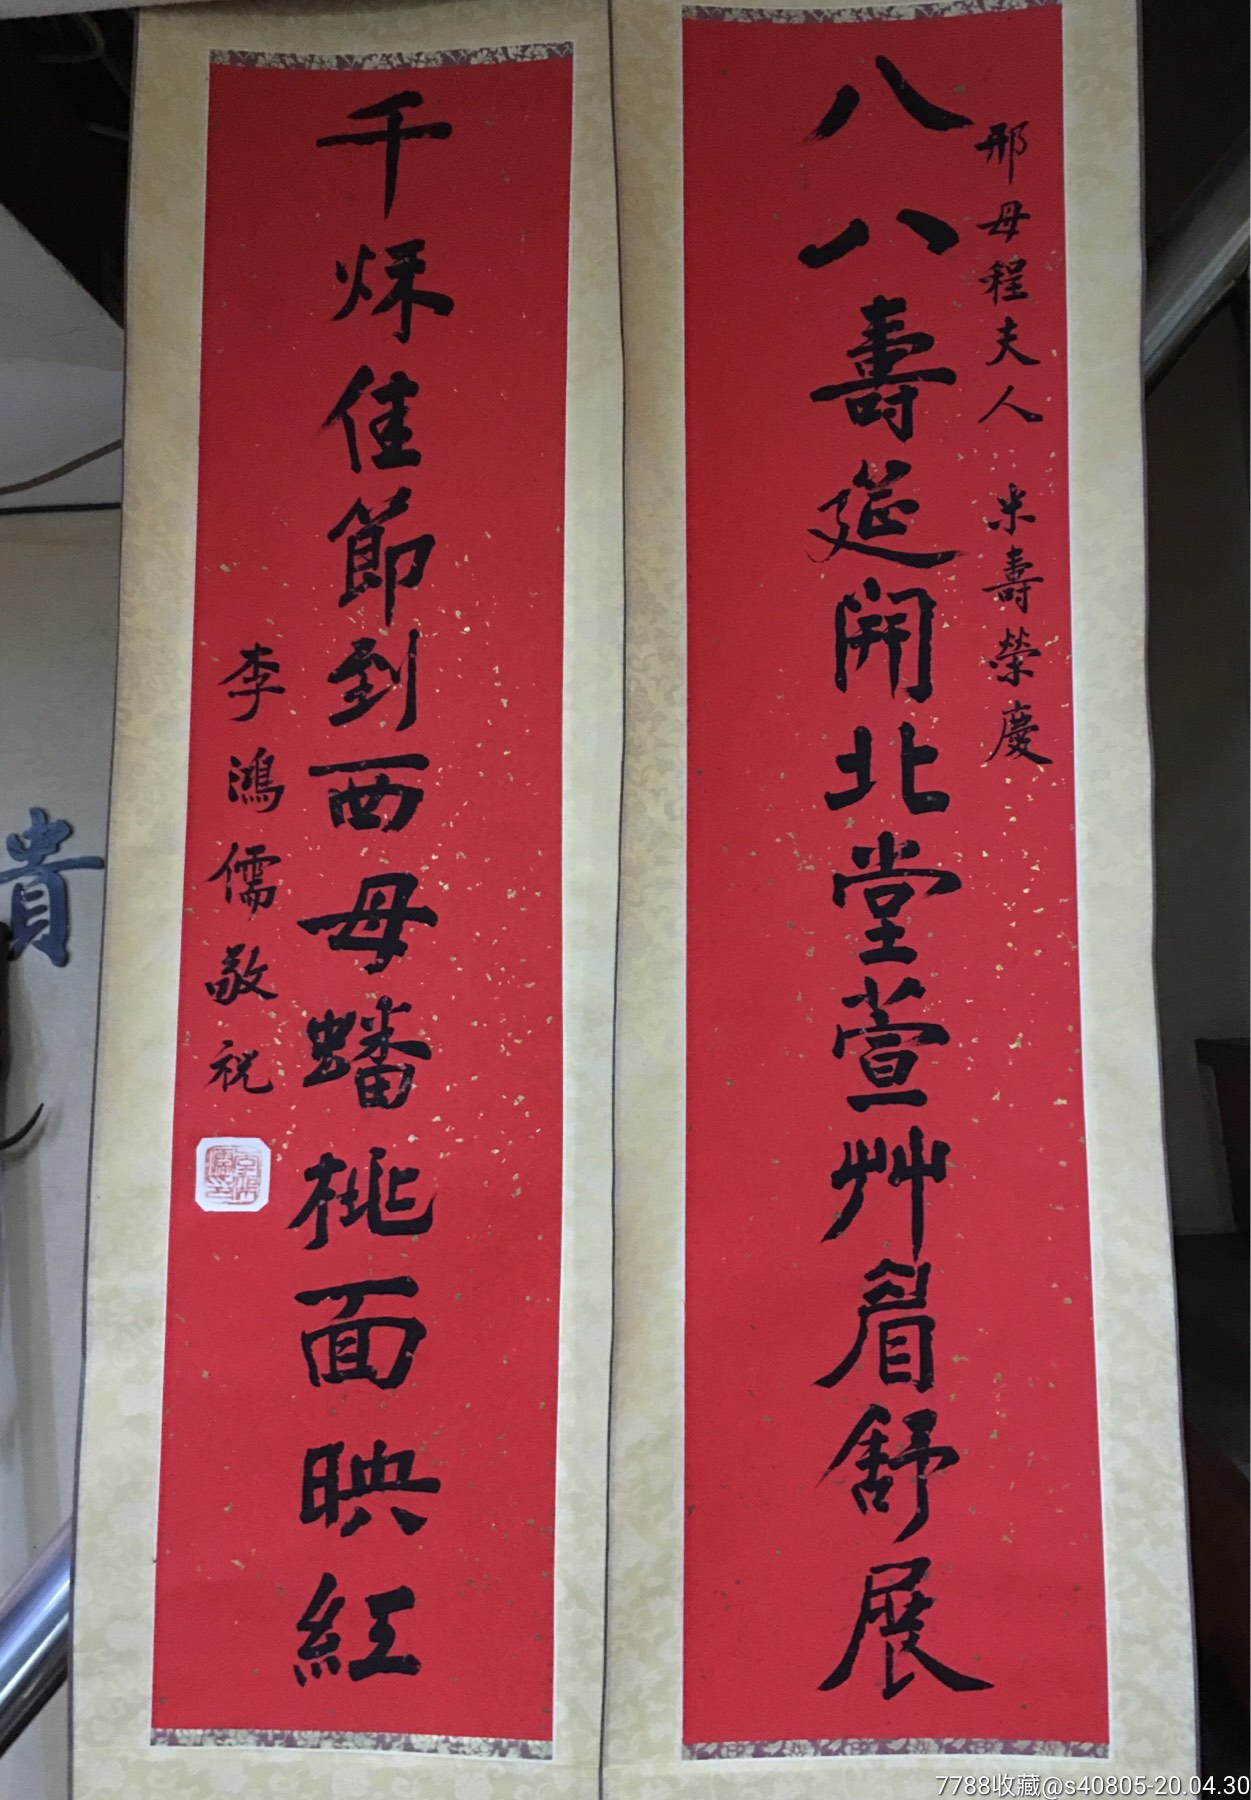 邢母程夫人 米壽榮慶
八八壽延開北堂萱艸眉舒展
千秌佳節到西母蟠桃面映紅
李鴻儒敬祝
貴
7788收藏@s40805-20.04.30